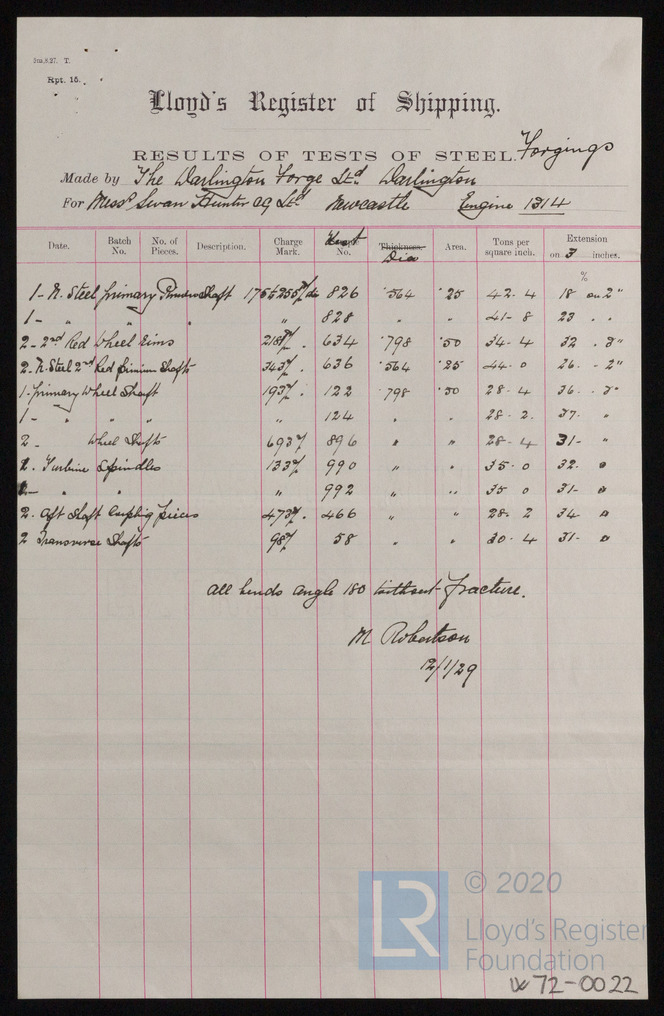 5m,8,27. T.
Rpt. 15.
Lloyd's Register of Shipping.
RESULTS OF TESTS OF STEEL. Forgings
Made by The Darlington Forge Ltd. Darlington
For Messrs Swan Hunter Ltd Newcastle Engine 1314
Date. Batch No. No. of Pieces. Description. Charge Mark. No. Thickness. Dia Area. Tons per square inch. Extension on 3 inches.
%
1 - N. Steel primary Shaft 826 .564 .25 42.4 18 on 2"
1 - " " " 828 " " 41-8 23 " "
2 - 2nd Red Wheel Rims 634 .798 .50 34-4 32 . 3"
2. N. Steel 2nd Red pinion Shafts 343 636 .564 .25 44.0 26. - 2"
1 - primary Wheel Shaft 193 122 .798 .50 28-4 36. . 3"
1 - " " " " 124 " " 28-2. 37. "
2 - Wheel Shafts 693 896 " " 28-4 31- "
Turbine Spindles 133 990 " " 35.0 32. "
" " " 992 " " 35 0 31- "
2. Aft Shaft Coupling pieces 473 466 " " 28.2 34 "
2 Transverse Shafts 98 58 " " 30.4 31- "
All bends angle 180 without fracture.
M Robertson
12/1/29
LR
© 2020
Lloyd's Register
Foundation
W72-0022